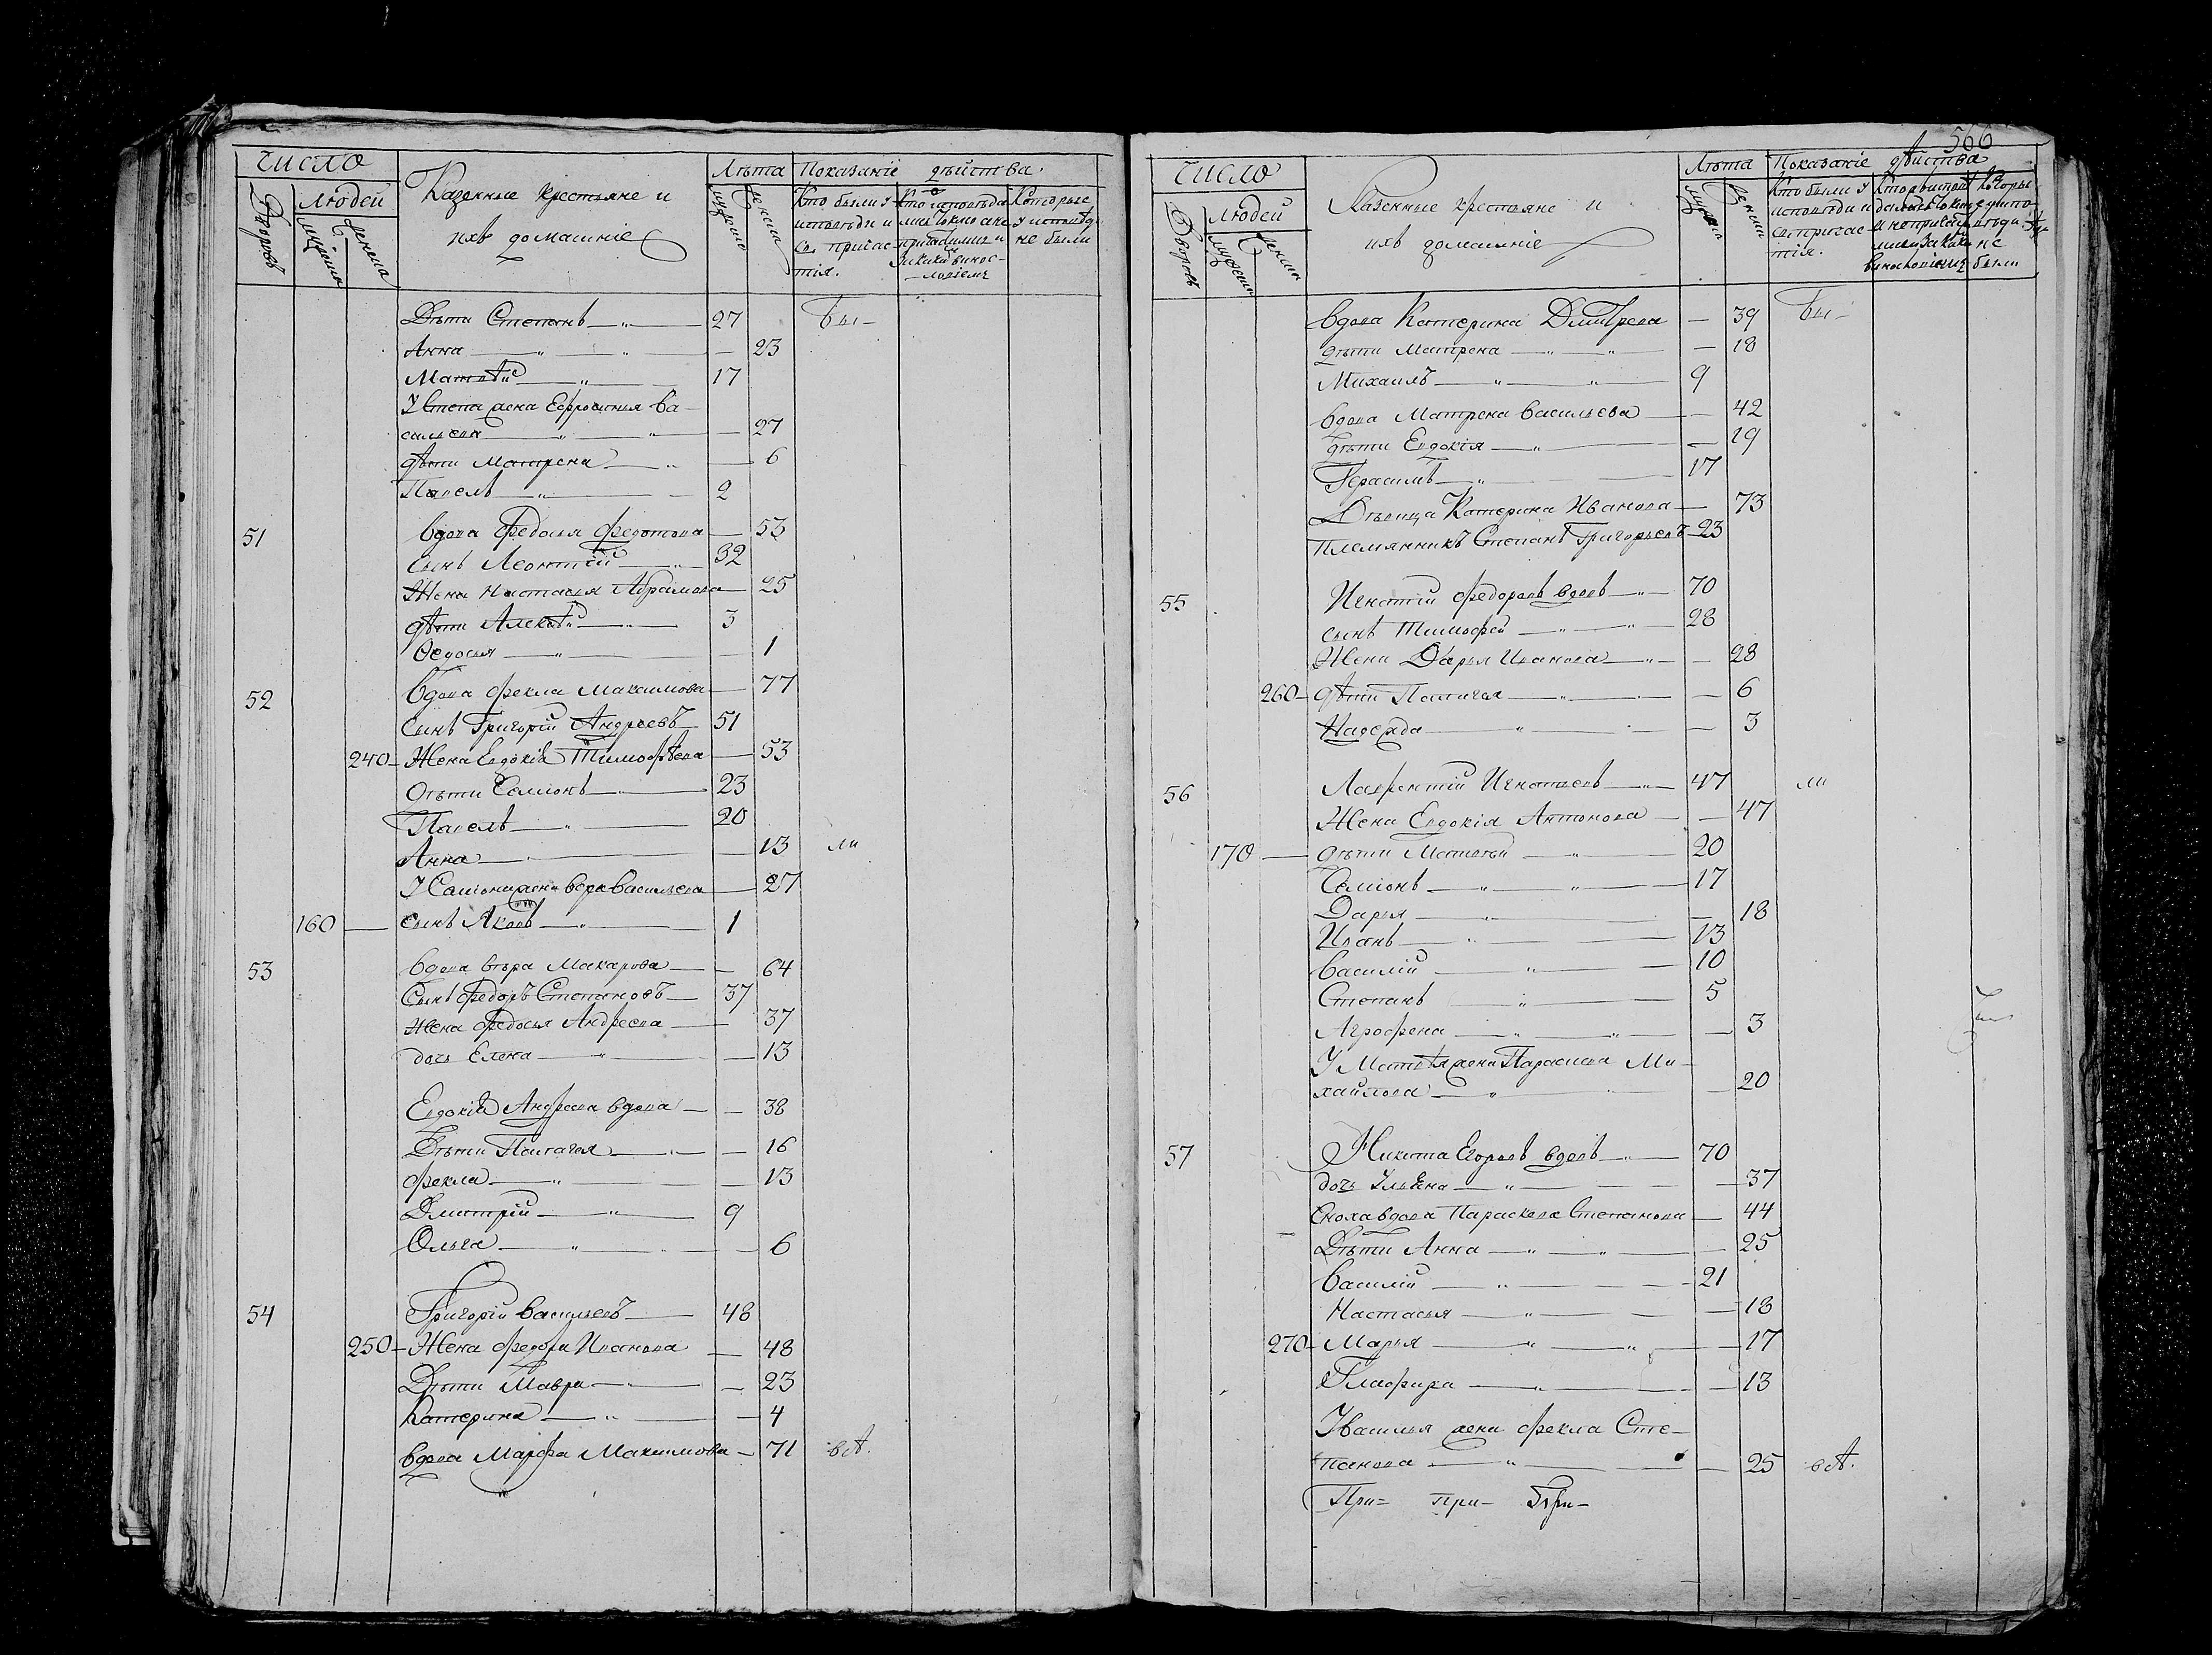 Число
Казенные крестьяне и
ихъ домашніе
Лѣта
Показаніе дѣйства.
Дворовъ
Людей
мужеска
женска
мужеска
женска
Кто были у
исповѣди и
св. причас-
тія.
Кто исповѣда
лись токмо а не
причастились и
за какимъ винос-
ловіемъ
Которые
у исповѣди
не были
Дѣти Степанъ — 27 бы-
Анна — 23
Матвѣй — 17
У Степа жена Ефросинья Ва-
сильева — 27
дѣти Матрена — 6
Павелъ — 2
51 вдова Федосья Федотова — 53
Сынъ Леонтій — 32
Жена Настасья Абрамова — 25
дѣти Алексѣй — 3
Ѳедосья — 1
52 Вдова Фекла Максимова — 77
Сынъ Григорій Андреевъ 51
240 Жена Евдокія Тимофѣева — 53
Дѣти Семіонъ — 23
Павелъ — 20
Анна — 13 ли
У Семіона жена Вера Васильева — 27
160 — сынъ Яковъ — 1
53 вдова Вѣра Макарова — 64
Сынъ Федоръ Степановъ — 37
Жена Федосья Андреева — 37
дочь Елена — 13
Евдокія Андреева вдова — 38
Дѣти Палагея — 16
Фекла — 13
Дмитрій — 9
Ольга — 6
54 Григорій Васильевъ — 48
250 Жена Федора Иванова — 48
Дѣти Мавра — 23
Катерина — 4
вдова Марфа Максимова — 71 вѢ.
566
Число
Казенные крестьяне и
ихъ домашніе
Лѣта
Показаніе дѣйства
Дворовъ
Людей
мужеска
женска
Кто были у
исповѣди и
св. причас-
тія.
не
были
вдова Катерина Дмитрева — 39 бы-
дѣти Матрена — 18
Михаилъ — 9
вдова Матрена Васильева — 42
Дѣти Евдокія — 19
Герасимъ — 17
Дѣвица Катерина Иванова — 73
Племянникъ Степанъ Григорьевъ 23
55 Игнатій Федоровъ вдовъ — 70
сынъ Тимофей — 28
Жена Дарья Иванова — 28
260 дѣти Палагея — 6
Надежда — 3
56 Лаврентій Игнатьевъ — 47 ли
Жена Евдокія Антонова — 47
170 — дѣти Матвѣй — 20
Семіонъ — 17
Дарья — 18
Иванъ — 13
Василій — 10
Степанъ — 5
Агрофена — 3
У Матвѣя жена Параскева Ми-
хайлова — 20
57 Никита Егоровъ вдовъ — 70
дочь Ульяна — 37
Сноха вдова Параскева Степанова — 44
Дѣти Анна — 25
Василій — 21
Настасья — 18
270 Марья — 17
Глафира — 13
У Василья жена Фекла Сте-
панова — 25 вѢ.
При= при-